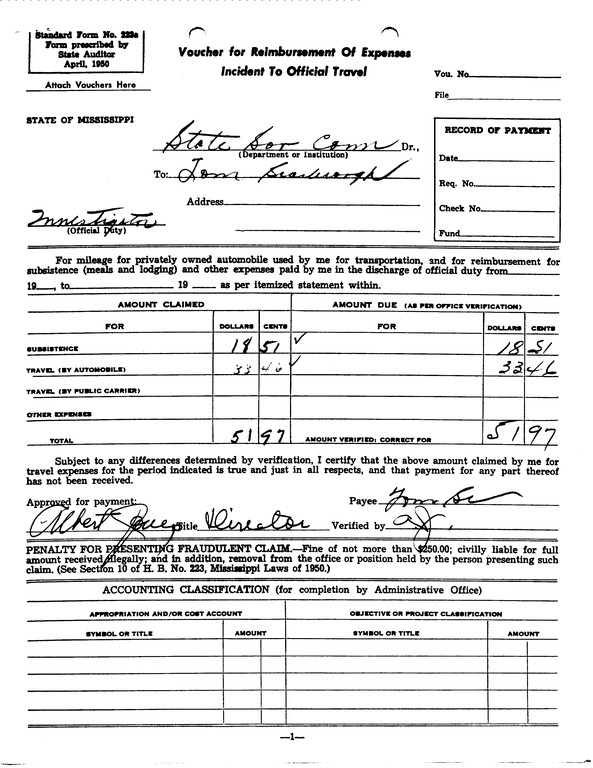 Standard Form No. 222a
Form prescribed by
State Auditor
April, 1950
Attach Vouchers Here
Voucher for Reimbursement Of Expenses
Incident To Official Travel
Vou. No.
File
STATE OF MISSISSIPPI
State Sov Comm Dr.,
(Department or Institution)
To: Tom Scarbrough
Address
Investigator
(Official Duty)
RECORD OF PAYMENT
Date
Req. No.
Check No.
Fund
For mileage for privately owned automobile used by me for transportation, and for reimbursement for
subsistence (meals and lodging) and other expenses paid by me in the discharge of official duty from
19 , to 19 as per itemized statement within.
AMOUNT CLAIMED AMOUNT DUE (AS PER OFFICE VERIFICATION)
FOR DOLLARS CENTS FOR DOLLARS CENTS
SUBSISTENCE 18 51 ✓ 18 51
TRAVEL (BY AUTOMOBILE) 33 46 ✓ 33 46
TRAVEL (BY PUBLIC CARRIER)
OTHER EXPENSES
TOTAL 51 97 AMOUNT VERIFIED: CORRECT FOR 51 97
Subject to any differences determined by verification, I certify that the above amount claimed by me for
travel expenses for the period indicated is true and just in all respects, and that payment for any part thereof
has not been received.
Approved for payment: Payee Tom
Albert Title Director Verified by
PENALTY FOR PRESENTING FRAUDULENT CLAIM.—Fine of not more than $250.00; civilly liable for full
amount received illegally; and in addition, removal from the office or position held by the person presenting such
claim. (See Section 10 of H. B. No. 223, Mississippi Laws of 1950.)
ACCOUNTING CLASSIFICATION (for completion by Administrative Office)
APPROPRIATION AND/OR COST ACCOUNT OBJECTIVE OR PROJECT CLASSIFICATION
SYMBOL OR TITLE AMOUNT SYMBOL OR TITLE AMOUNT
—1—